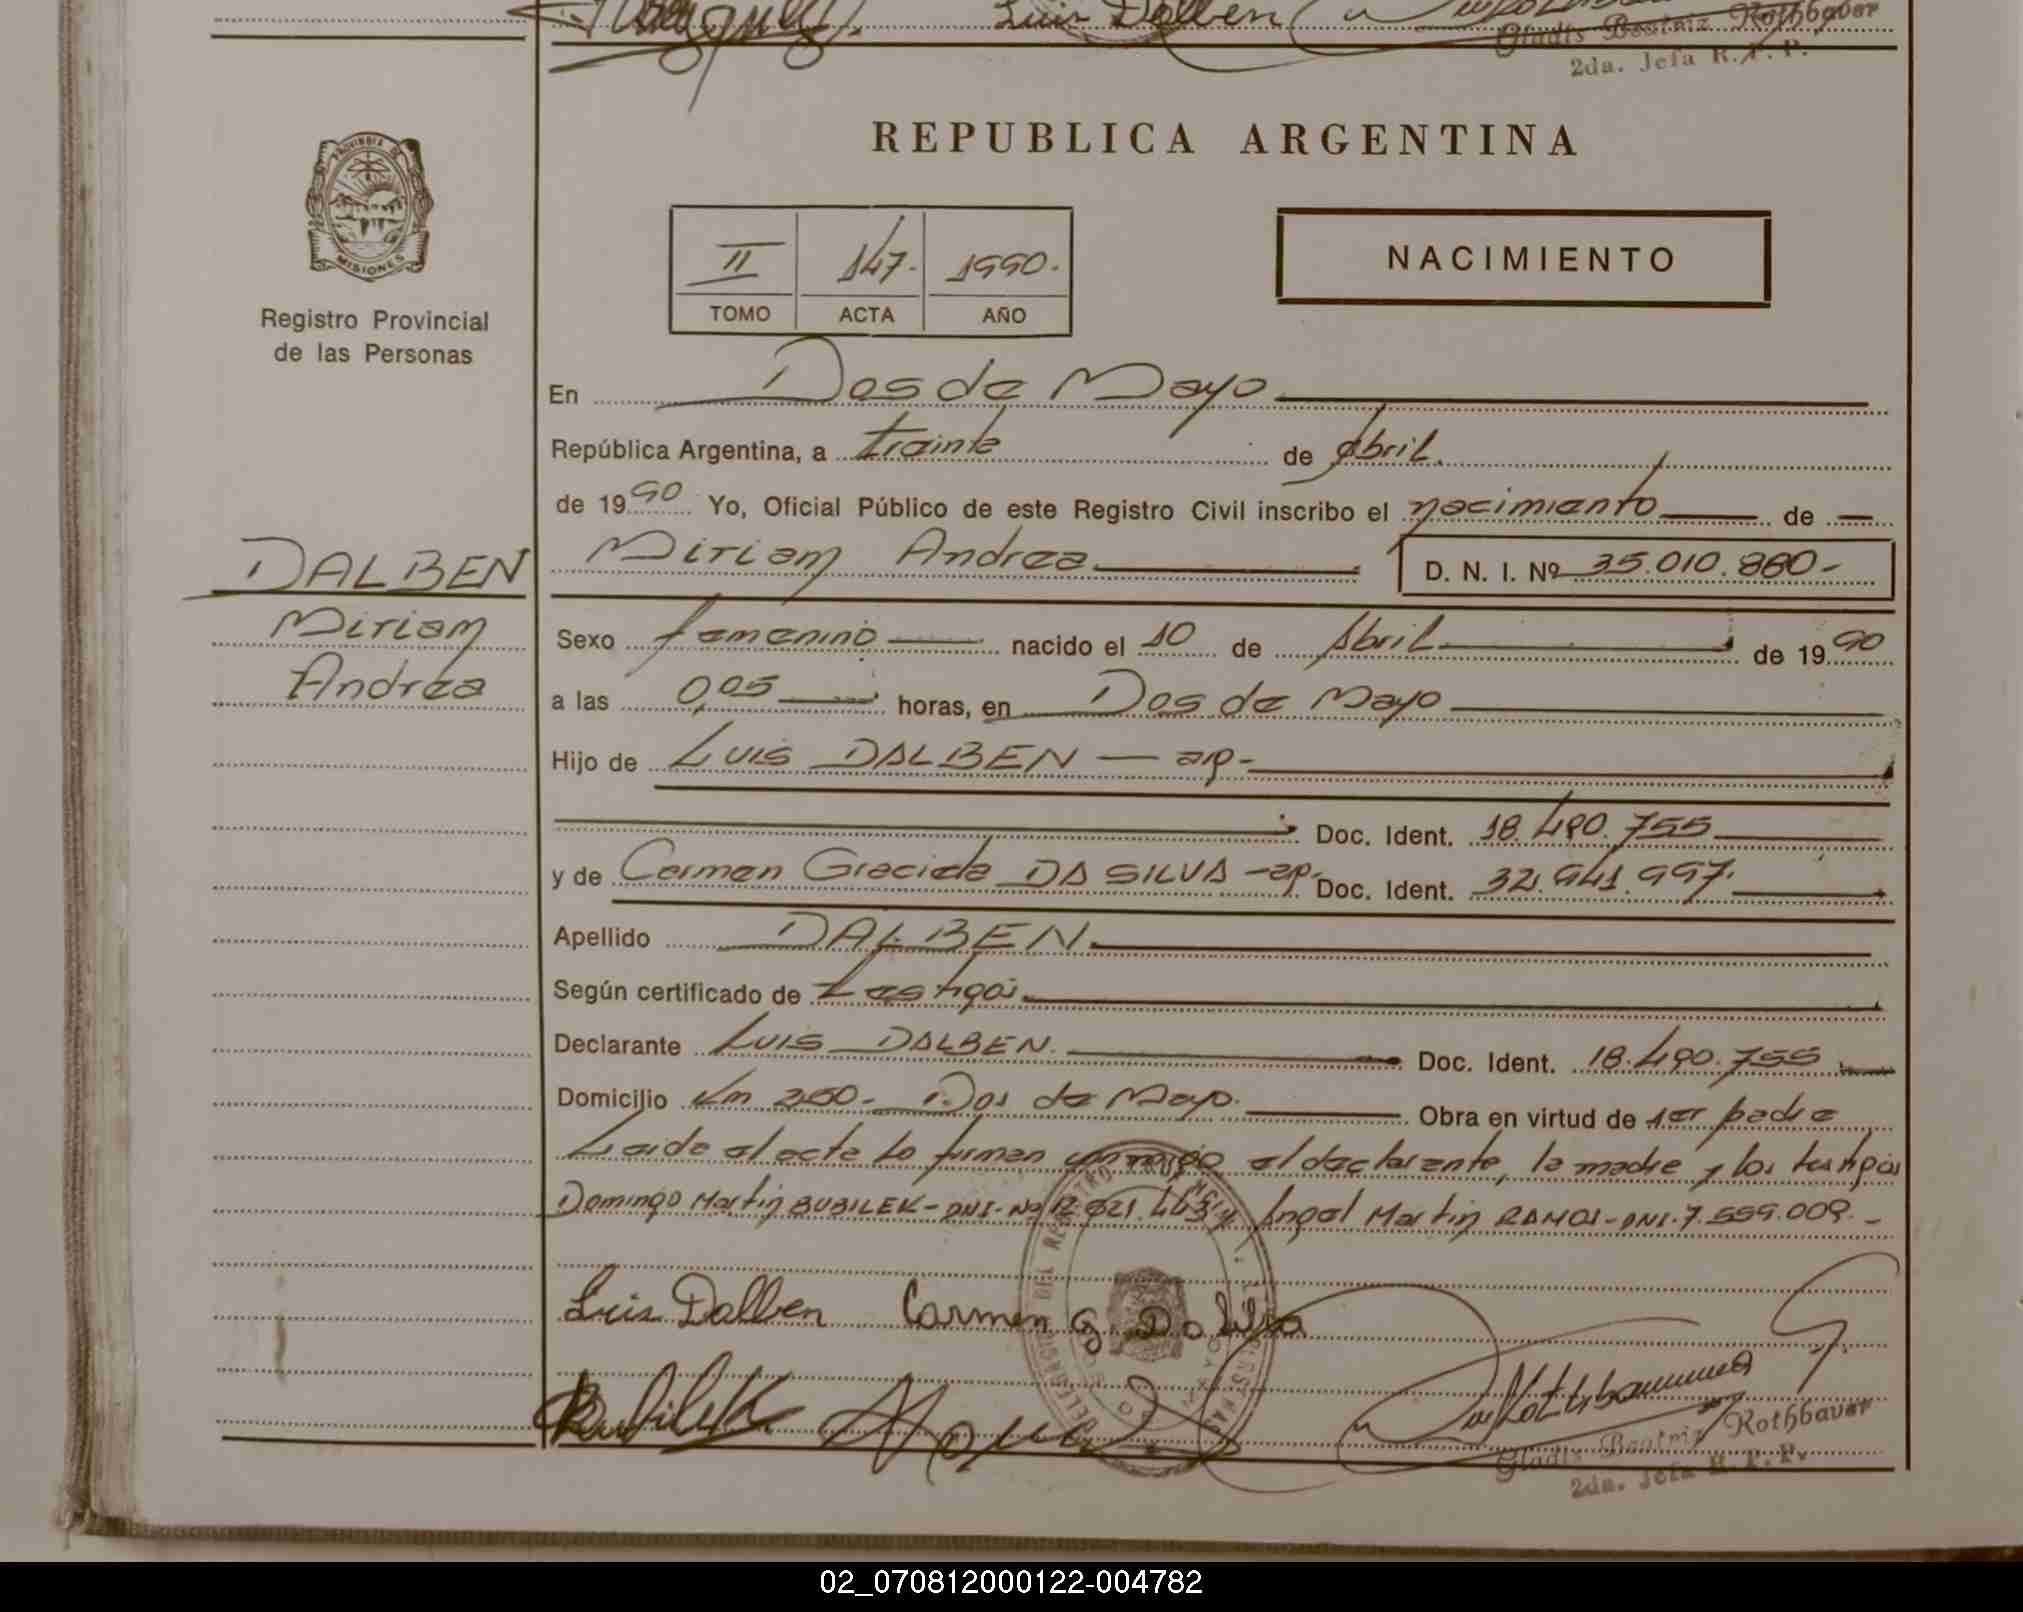 Luis Dalben
Gladis Beatriz Rothbauer
2da. Jefa R. P. P.
PROVINCIA DE
MISIONES
Registro Provincial
de las Personas
REPUBLICA ARGENTINA
II 147. 1990.
TOMO ACTA AÑO
NACIMIENTO
En Dos de Mayo
República Argentina, a treinta de Abril.
de 1990 Yo, Oficial Público de este Registro Civil inscribo el nacimiento de
DALBEN
Miriam
Andrea
Miriam Andrea D. N. I. Nº 35.010.880-
Sexo femenino nacido el 10 de Abril de 1990
a las 0,05 horas, en Dos de Mayo
Hijo de Luis DALBEN — ap-
Doc. Ident. 18.490.755
y de Carmen Graciela DA SILVA -ap- Doc. Ident. 32.941.997.
Apellido DALBEN
Según certificado de testigos
Declarante Luis DALBEN. Doc. Ident. 18.490.755
Domicilio Km 250- Dos de Mayo. Obra en virtud de 1er padre
Leida el acta la firman conmigo el declarante, la madre y los testigos
Domingo Martin BUBILEK - DNI-Nº y Angel Martin RAMOS - DNI. 7.559.009.-
Luis Dalben Carmen G. Da Silva
Bubilek
Gladis Beatriz Rothbauer
2da. Jefa R. P. P.
02_070812000122-004782